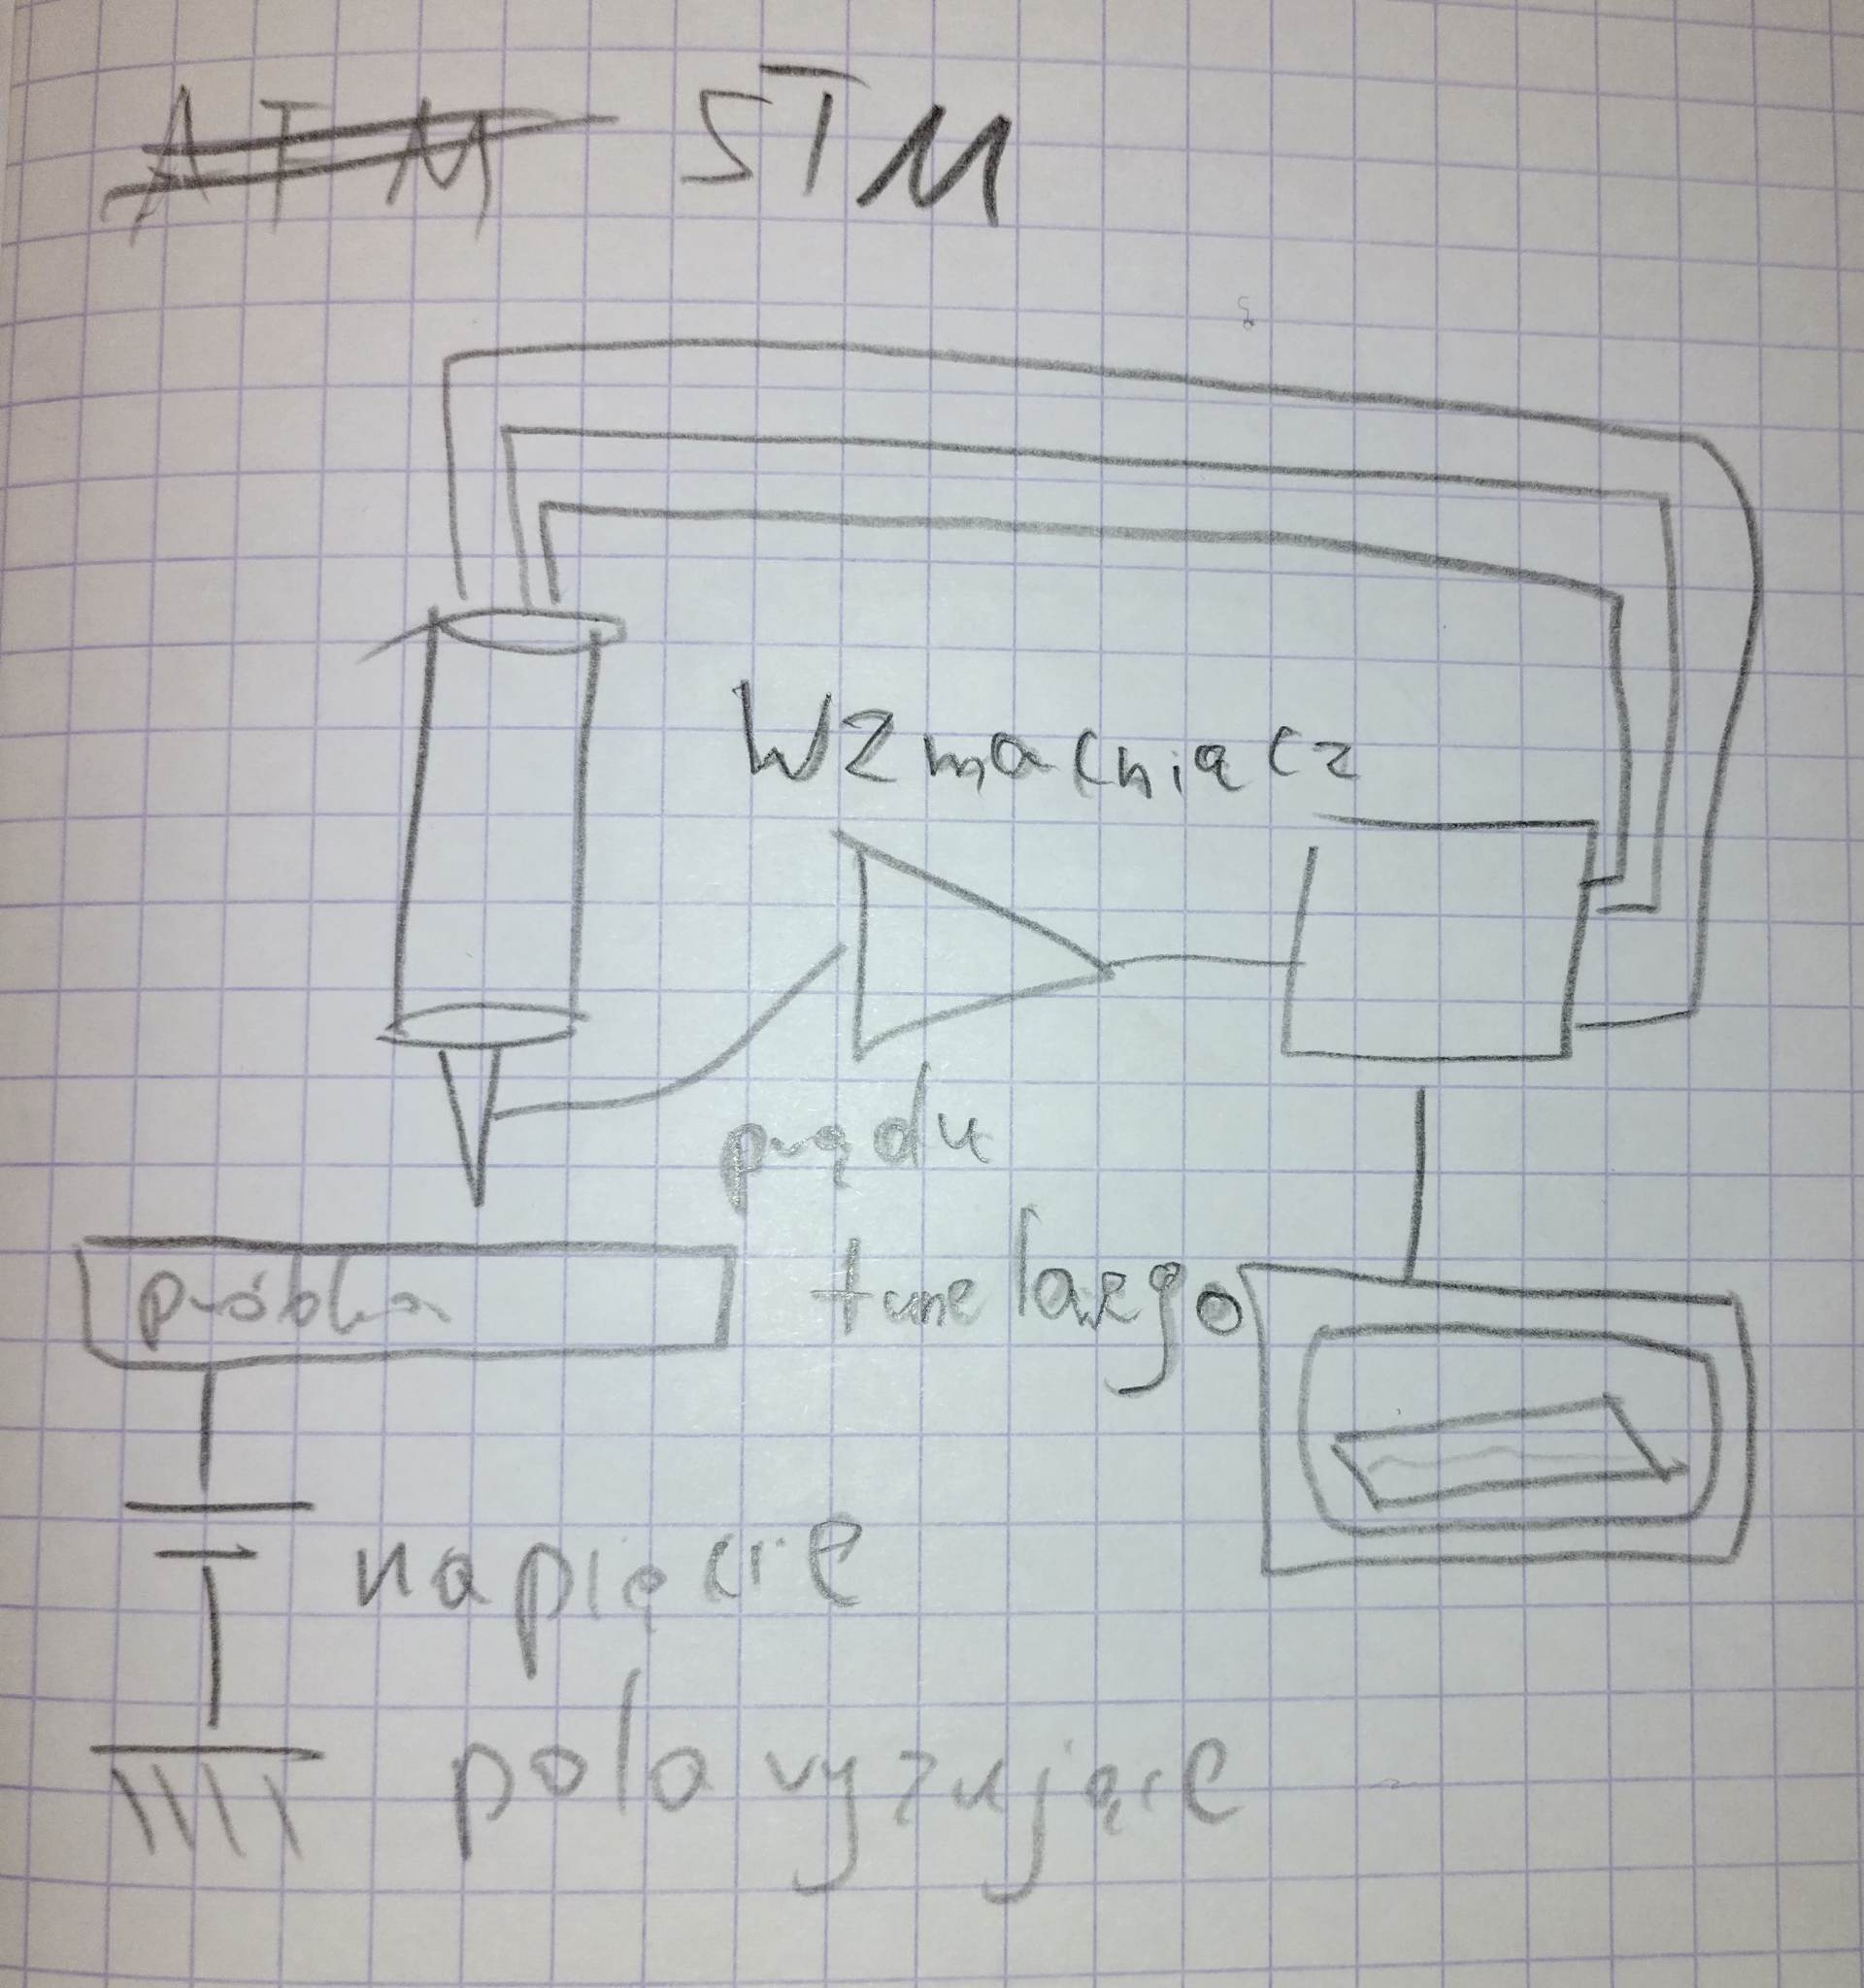 AFM STM
Wzmacniacz
prądu
tunelowego
próbka
napięcie
polaryzujące